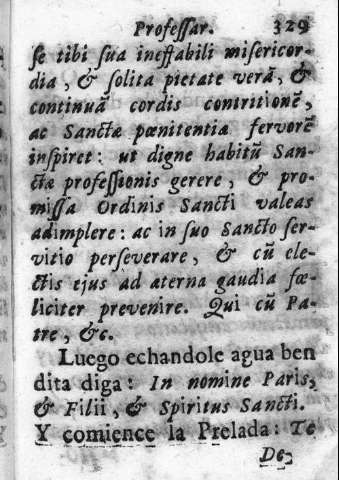 Professar. 329
se tibi sua ineffabili misericor-
dia, & solita pietate verã, &
continuã cordis contritionẽ,
ac Sanctæ pœnitentiæ fervorẽ
inspiret: ut digne habitũ San-
ctæ professionis gerere, & pro-
missa Ordinis Sancti valeas
adimplere: ac in suo Sancto ser-
vitio perseverare, & cũ ele-
ctis ejus ad aterna gaudia fœ-
liciter prevenire. Qui cũ Pa-
tre, &c.
Luego echandole agua ben
dita diga: In nomine Paris,
& Filii, & Spiritus Sancti.
Y comience la Prelada: Te
De-